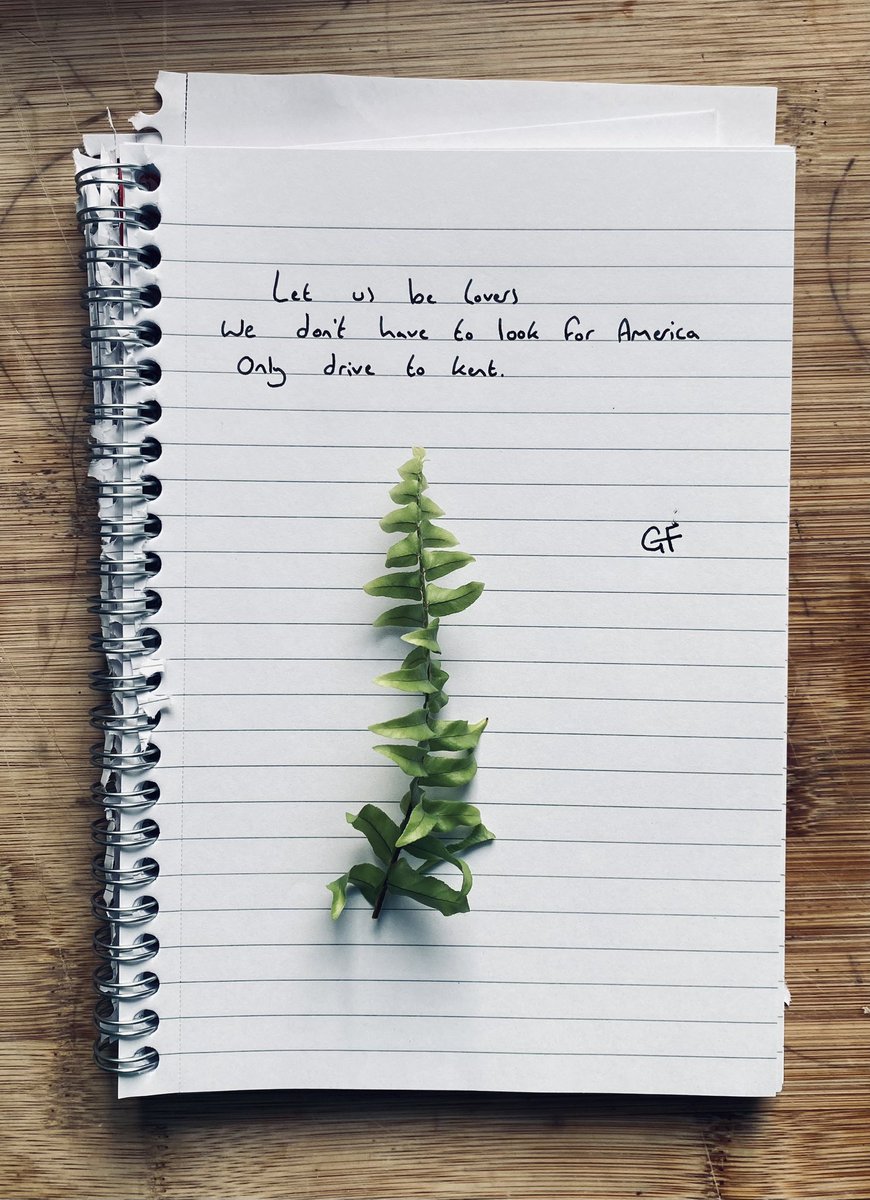 Let us be lovers
We don't have to look for America
Only drive to kent.
GF